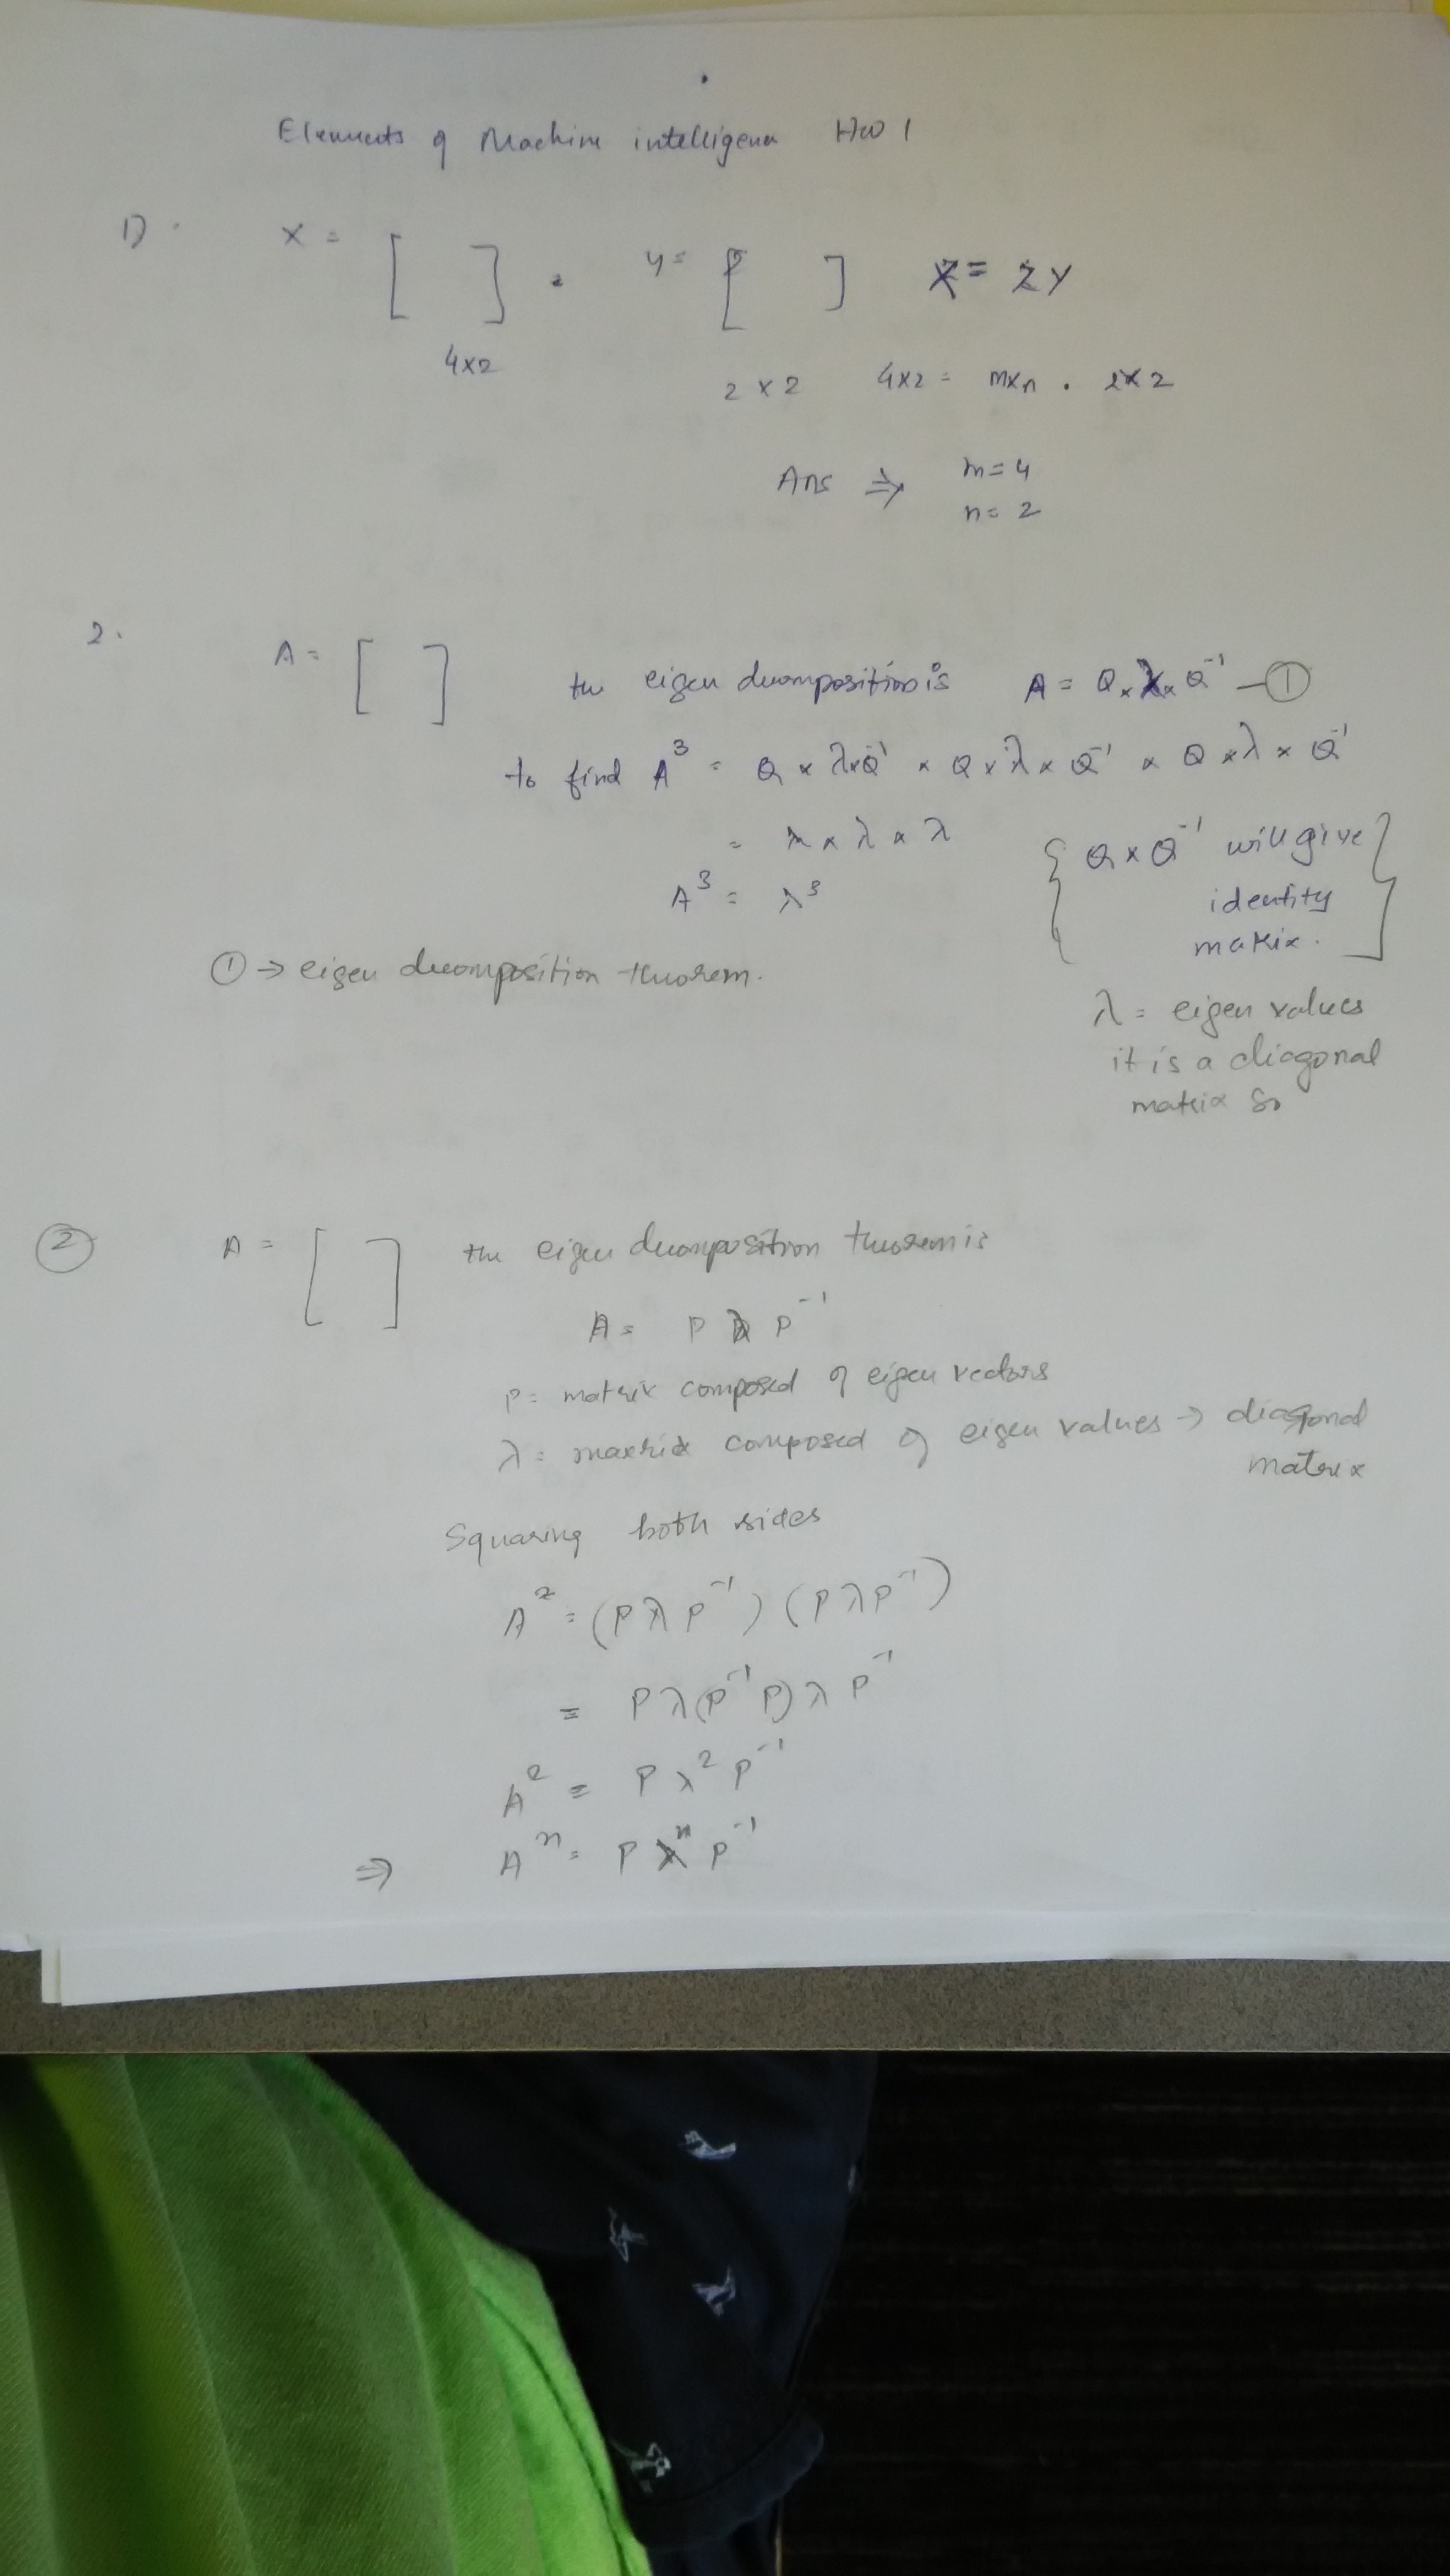 Elements of Machine intelligence HW 1
1) X = [ ] . Y = [ ] X = ZY
4x2
2 x 2 4x2 = mxn . 2x2
Ans ⇒ m = 4
n = 2
2. A = [ ] the eigen decomposition is A = Q x λ x Q⁻¹ — ①
to find A³ = Q x λ x Q⁻¹ x Q x λ x Q⁻¹ x Q x λ x Q⁻¹
= λ x λ x λ
A³ = λ³
{ Q x Q⁻¹ will give
identity
matrix. }
① → eigen decomposition theorem.
λ = eigen values
it is a diagonal
matrix So
② A = [ ] the eigen decomposition theorem is
A = P λ P⁻¹
P = matrix composed of eigen vectors
λ = matrix composed of eigen values → diagonal
matrix
Squaring both sides
A² = (P λ P⁻¹) (P λ P⁻¹)
= P λ (P⁻¹ P) λ P⁻¹
A² = P λ² P⁻¹
⇒ Aⁿ = P λⁿ P⁻¹